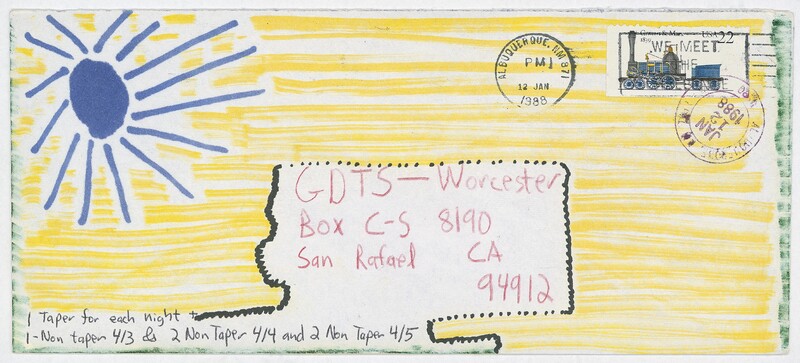 ALBUQUERQUE, NM 871
PM
12 JAN
1988
USA 22
WE MEET
THE
JAN
12
1988
GDTS—Worcester
Box C-S 8190
San Rafael CA
94912
1 Taper for each night +
1-Non taper 4/3 & 2 Non Taper 4/4 and 2 Non Taper 4/5